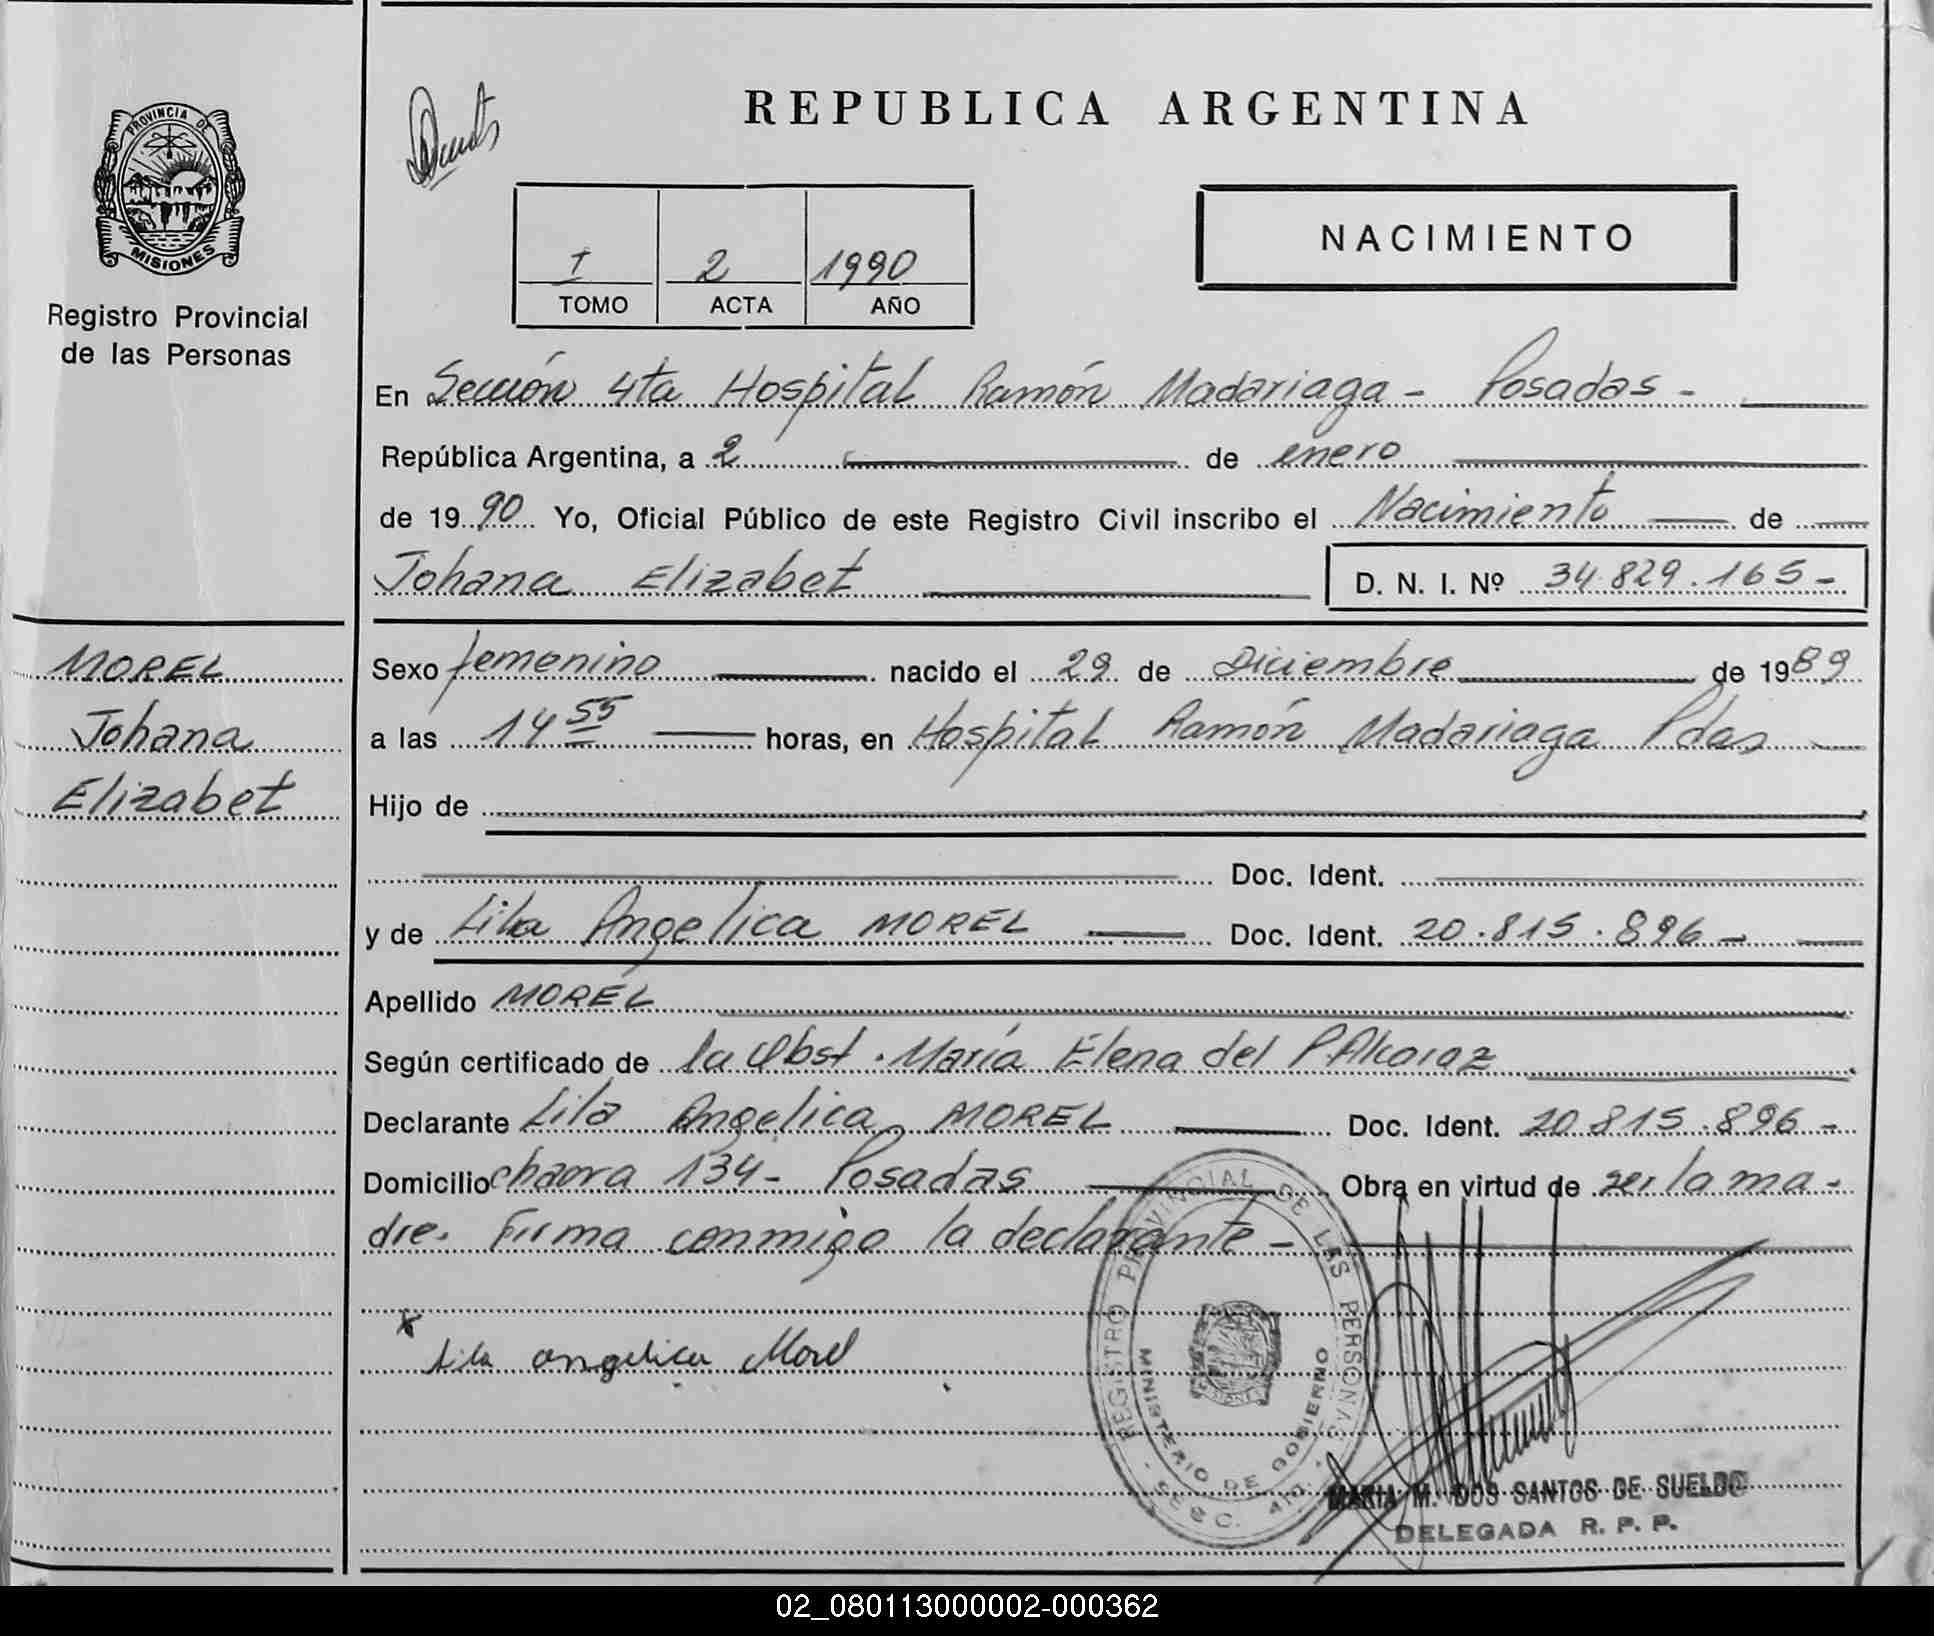 PROVINCIA DE
MISIONES
Registro Provincial
de las Personas
MOREL
Johana
Elizabet
REPUBLICA ARGENTINA
I 2 1990
TOMO ACTA AÑO
NACIMIENTO
En Sección 4ta Hospital Ramón Madariaga - Posadas -
República Argentina, a 2 de enero
de 1990 Yo, Oficial Público de este Registro Civil inscribo el Nacimiento de
Johana Elizabet D. N. I. Nº 34.829.165-
Sexo femenino nacido el 29 de Diciembre de 1989
a las 14 55 horas, en Hospital Ramón Madariaga Pdas
Hijo de
Doc. Ident.
y de Lila Angelica MOREL Doc. Ident. 20.815.896-
Apellido MOREL
Según certificado de la Obst. María Elena del P. Alcaraz
Declarante Lila Angelica MOREL Doc. Ident. 20.815.896-
Domicilio chacra 134- Posadas Obra en virtud de ser la ma-
dre. Firma conmigo la declarante -
x
Lila angelica Morel
REGISTRO PROVINCIAL DE LAS PERSONAS
MINISTERIO DE GOBIERNO
- SECC. 4ta. -
MARIA M. DOS SANTOS DE SUELDO
DELEGADA R. P. P.
02_080113000002-000362